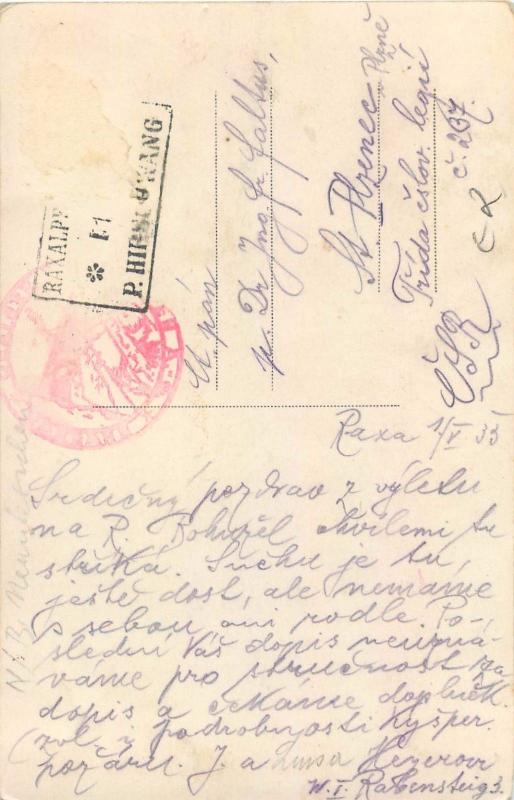 RAXALPE
P. HIRSCHWANG
Ct. pán
p. Dr Ing Fr. Faltus,
St. Plzenec u Plzně
Třída čslov. legií
č. 237.
ČSR
Raxa 1/V 35
Srdečný pozdrav z výletu
na R. Bohužel chvílemi tu
stříká. Sněhu je tu
ještě dost, ale nemáme
s sebou ani rodle. Po-
slední Váš dopis neuzná-
váme pro stručnost za
dopis a čekáme doplněk
zvl. z podrobností Kyšper.
požáru. J a Hezerovi
W. I. Rabensteig 3.